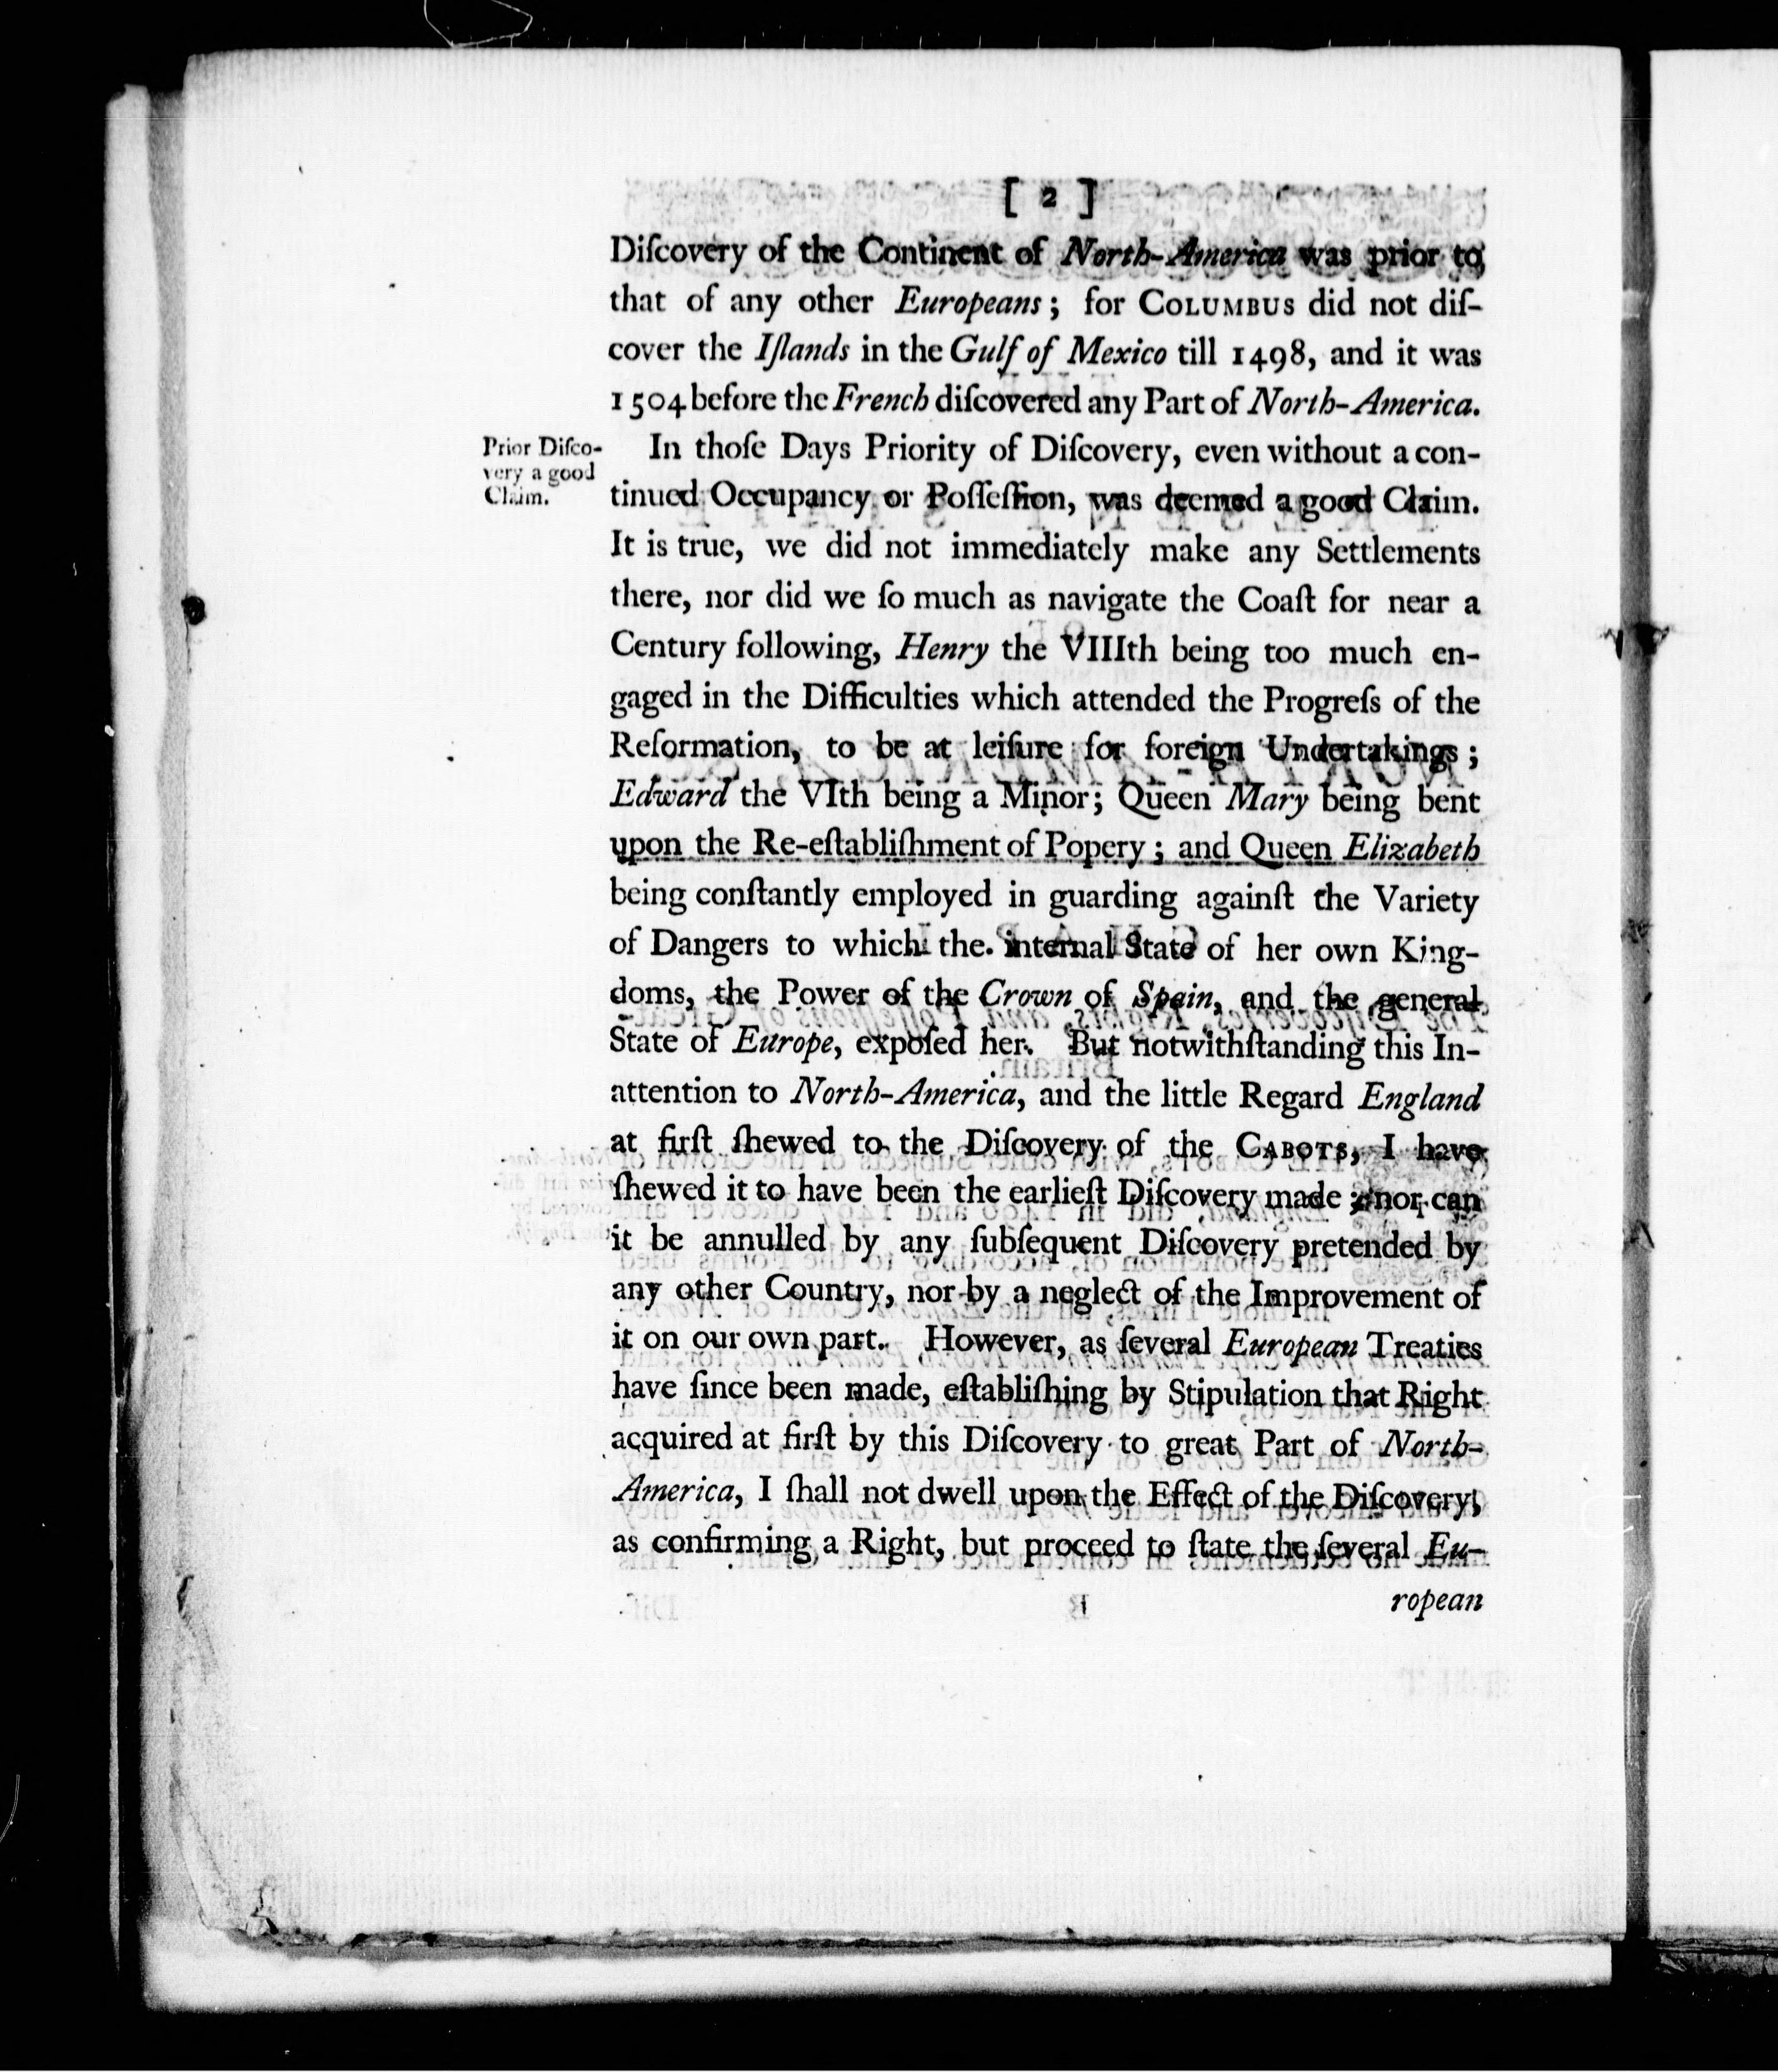 [ 2 ]
Diſcovery of the Continent of North-America was prior to
that of any other Europeans; for COLUMBUS did not diſ-
cover the Iſlands in the Gulf of Mexico till 1498, and it was
1504 before the French diſcovered any Part of North-America.
Prior Diſco-
very a good
Claim.
In thoſe Days Priority of Diſcovery, even without a con-
tinued Occupancy or Poſſeſſion, was deemed a good Claim.
It is true, we did not immediately make any Settlements
there, nor did we ſo much as navigate the Coaſt for near a
Century following, Henry the VIIIth being too much en-
gaged in the Difficulties which attended the Progreſs of the
Reformation, to be at leiſure for foreign Undertakings;
Edward the VIth being a Minor; Queen Mary being bent
upon the Re-eſtabliſhment of Popery; and Queen Elizabeth
being conſtantly employed in guarding againſt the Variety
of Dangers to which the internal State of her own King-
doms, the Power of the Crown of Spain, and the general
State of Europe, expoſed her. But notwithſtanding this In-
attention to North-America, and the little Regard England
at firſt ſhewed to the Diſcovery of the CABOTS, I have
ſhewed it to have been the earlieſt Diſcovery made; nor can
it be annulled by any ſubſequent Diſcovery pretended by
any other Country, nor by a neglect of the Improvement of
it on our own part. However, as ſeveral European Treaties
have ſince been made, eſtabliſhing by Stipulation that Right
acquired at firſt by this Diſcovery to great Part of North-
America, I ſhall not dwell upon the Effect of the Diſcovery,
as confirming a Right, but proceed to ſtate the ſeveral Eu-
ropean